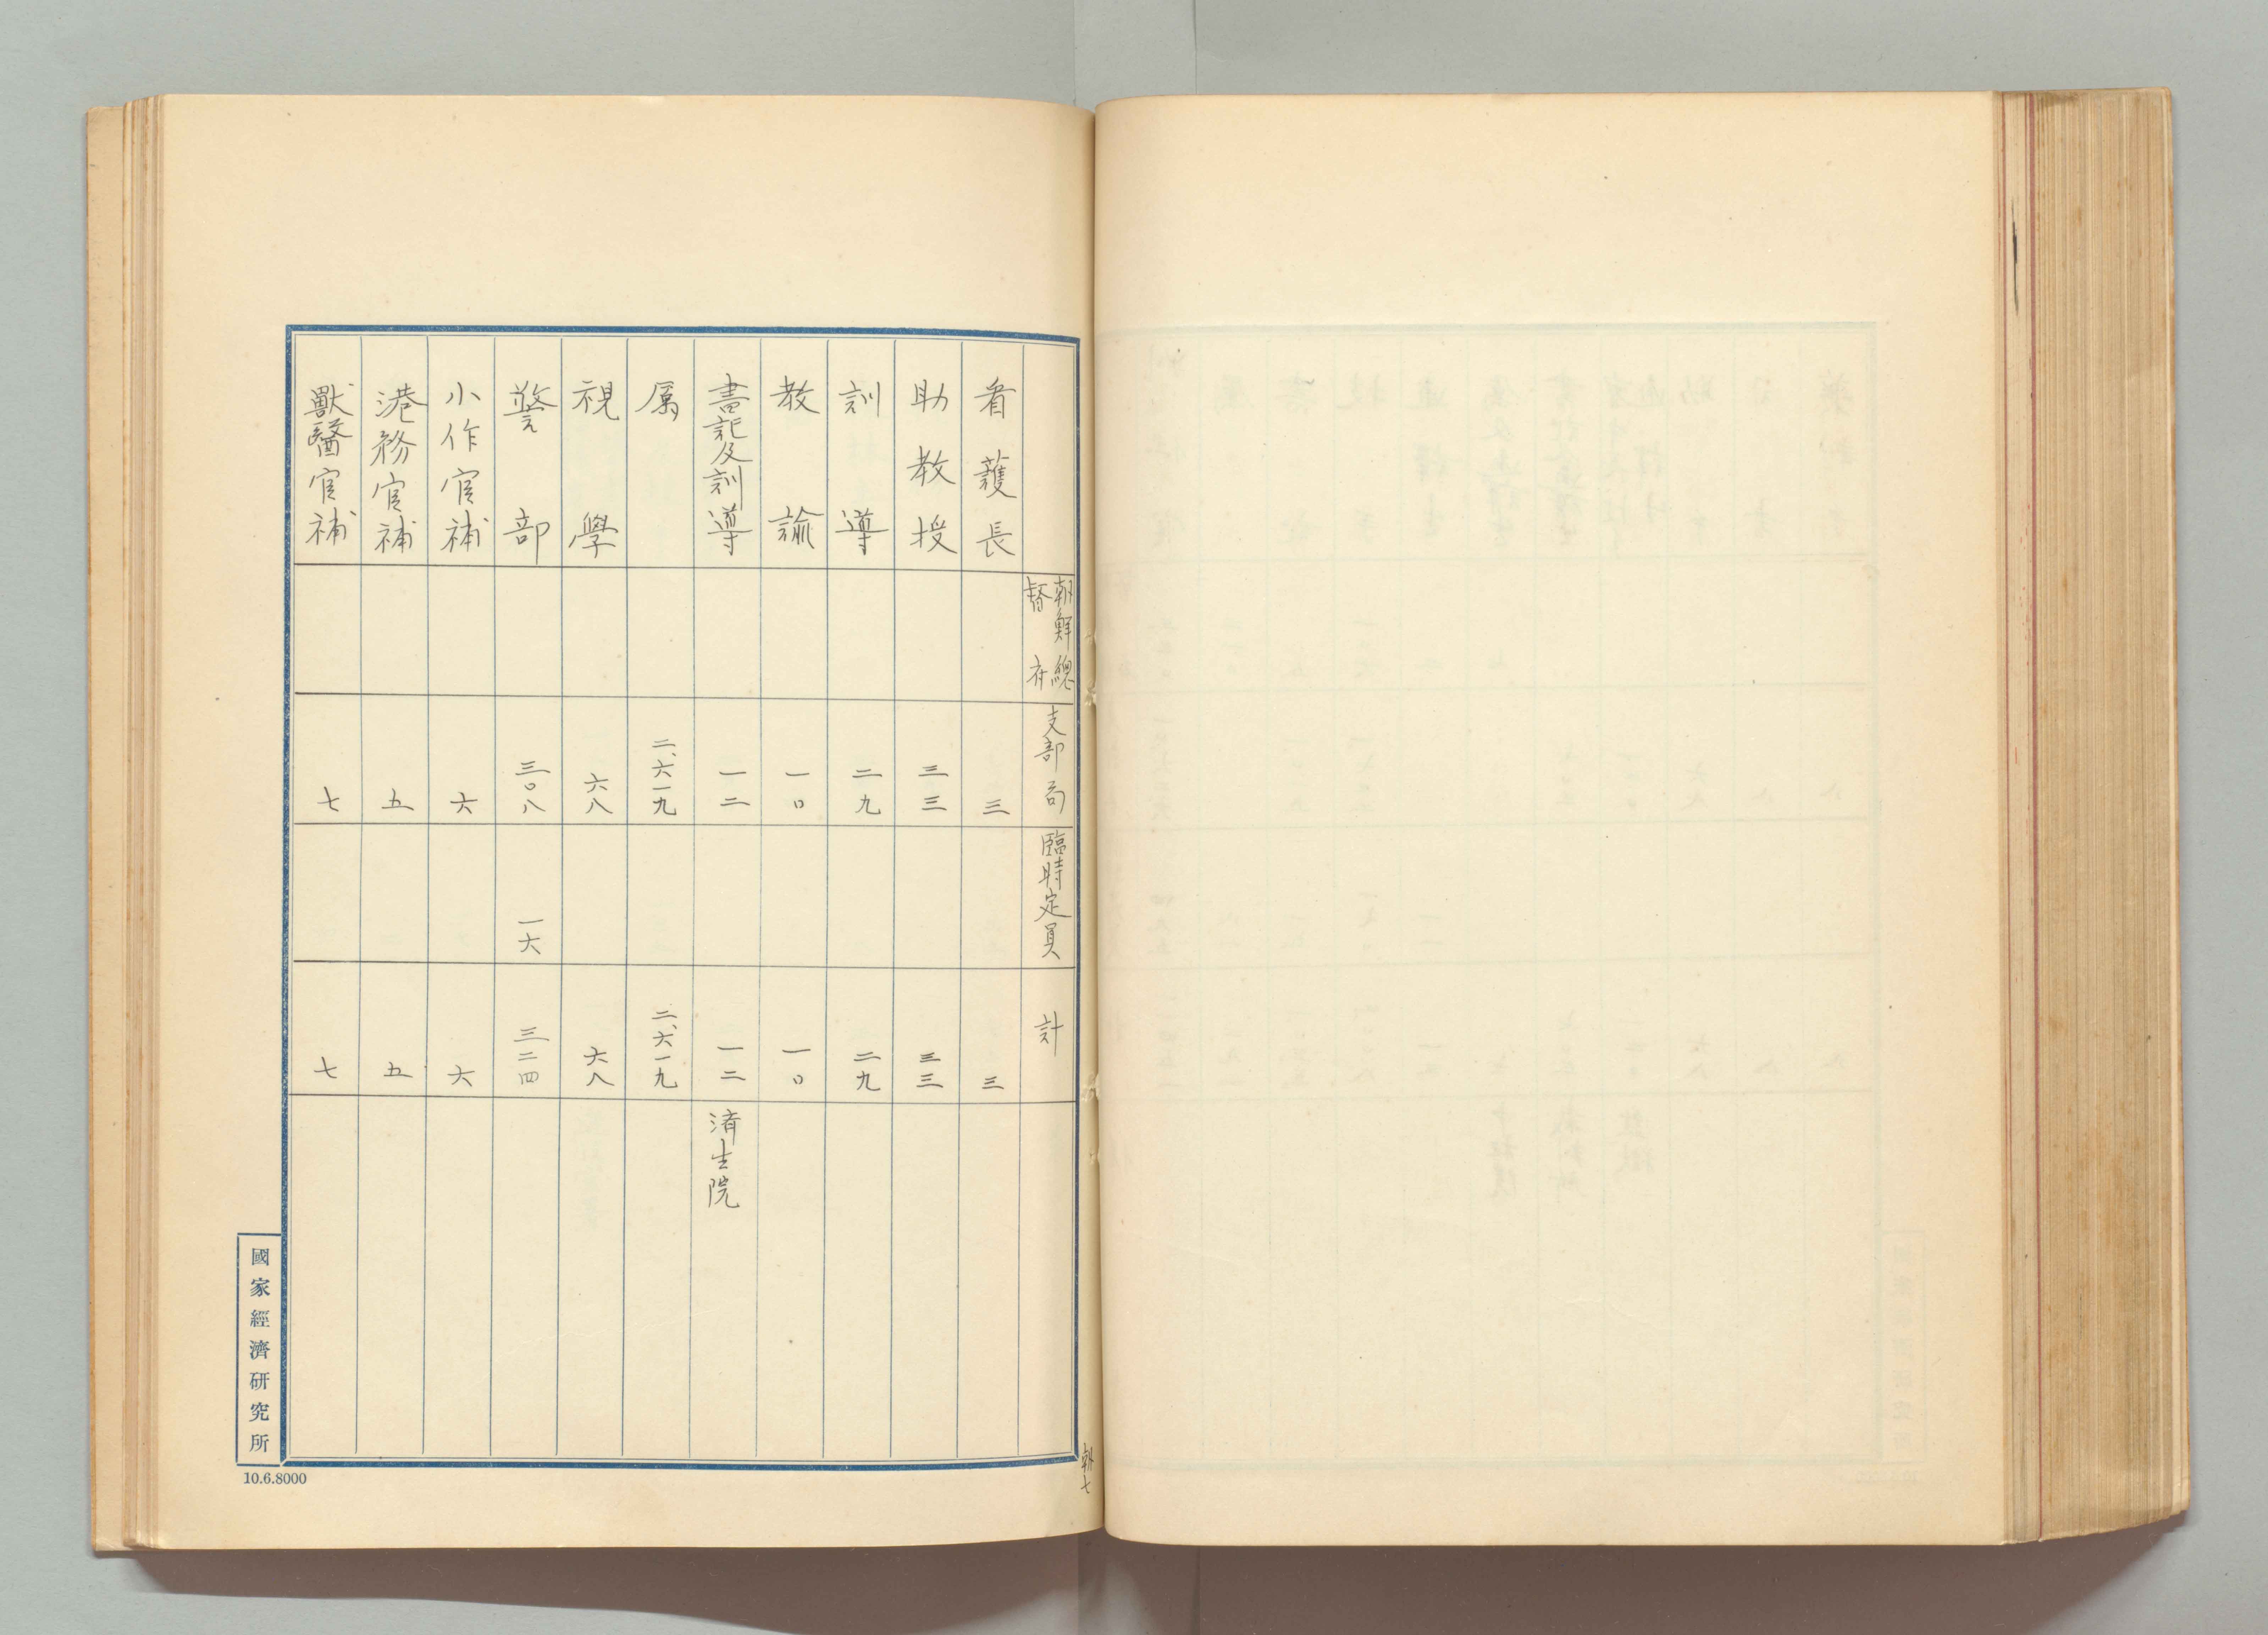 朝鮮總督府 支部局 臨時定員 計
看護長 三 三
助教授 三三 三三
訓導 二九 二九
教諭 一〇 一〇
書記及訓導 一二 一二 済生院
属 二、六一九 二、六一九
視學 六八 六八
警部 三〇八 一六 三二四
小作官補 六 六
港務官補 五 五
獸醫官補 七 七
朝七
國家經濟研究所
10.6.8000